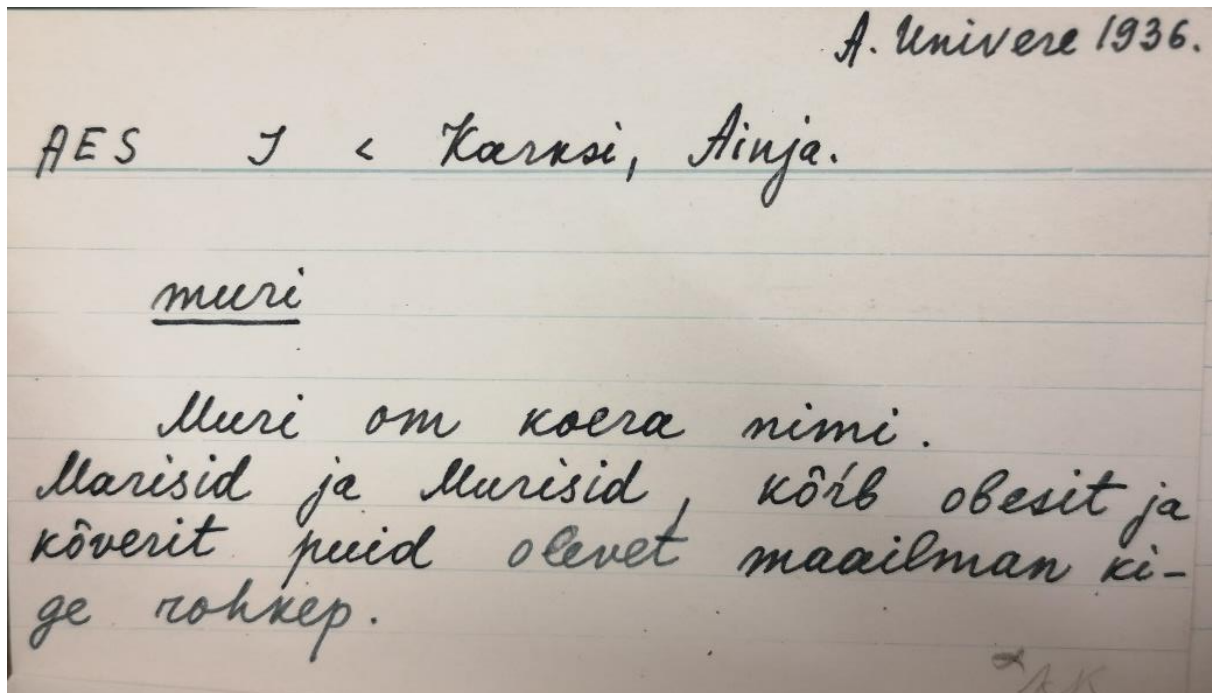 A. Univere 1936.
AES I < Karksi, Ainja.
muri
Muri om koera nimi.
Marisid ja Murisid, kõrb obesit ja
kõverit puid olevet maailman ki-
ge rohkep.
AK